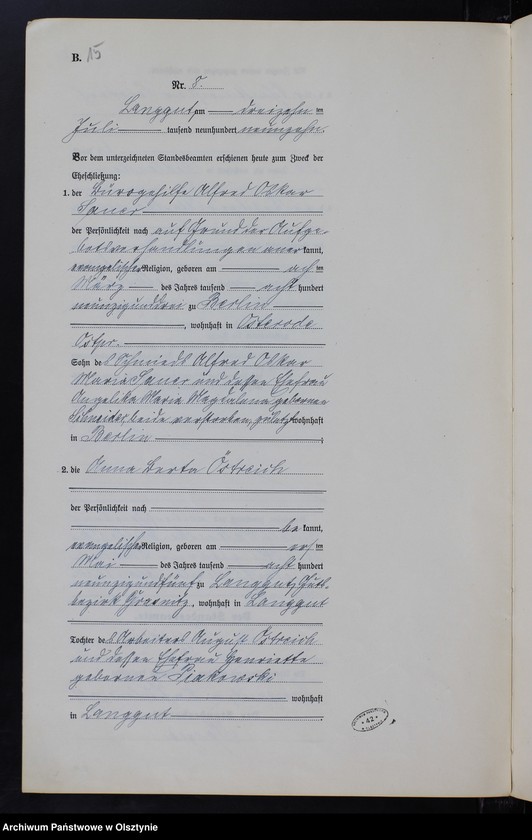 B. 15
Nr. 8.
Langgut, am dreizehn ten
Juli tausend neunhundert neunzehn.
Vor dem unterzeichneten Standesbeamten erschienen heute zum Zweck der
Eheschließung:
1. der Bürogehilfe Alfred Oskar
der Persönlichkeit nach auf Grund der Aufge-
botsverhandlungen aner kannt,
evangelischer Religion, geboren am ach ten
März des Jahres tausend acht hundert
neunzigunddrei zu Berlin
, wohnhaft in Osterode
Ostpr.
Sohn des Schmieds Alfred Oskar
Maria und dessen Ehefrau
Angelika Maria Magdalena geborenen
Schneider, beide verstorben, zuletzt wohnhaft
in Berlin ;
2. die Anna Berta Östreich
der Persönlichkeit nach
be kannt,
evangelischer Religion, geboren am ers ten
Mai des Jahres tausend acht hundert
neunzigundfünf zu Langgut, Guts-
bezirk Grasnitz, wohnhaft in Langgut
Tochter des Arbeiters August Östreich
und dessen Ehefrau Henriette
geborenen Piakowski
wohnhaft
in Langgut .
42
Archiwum Państwowe w Olsztynie